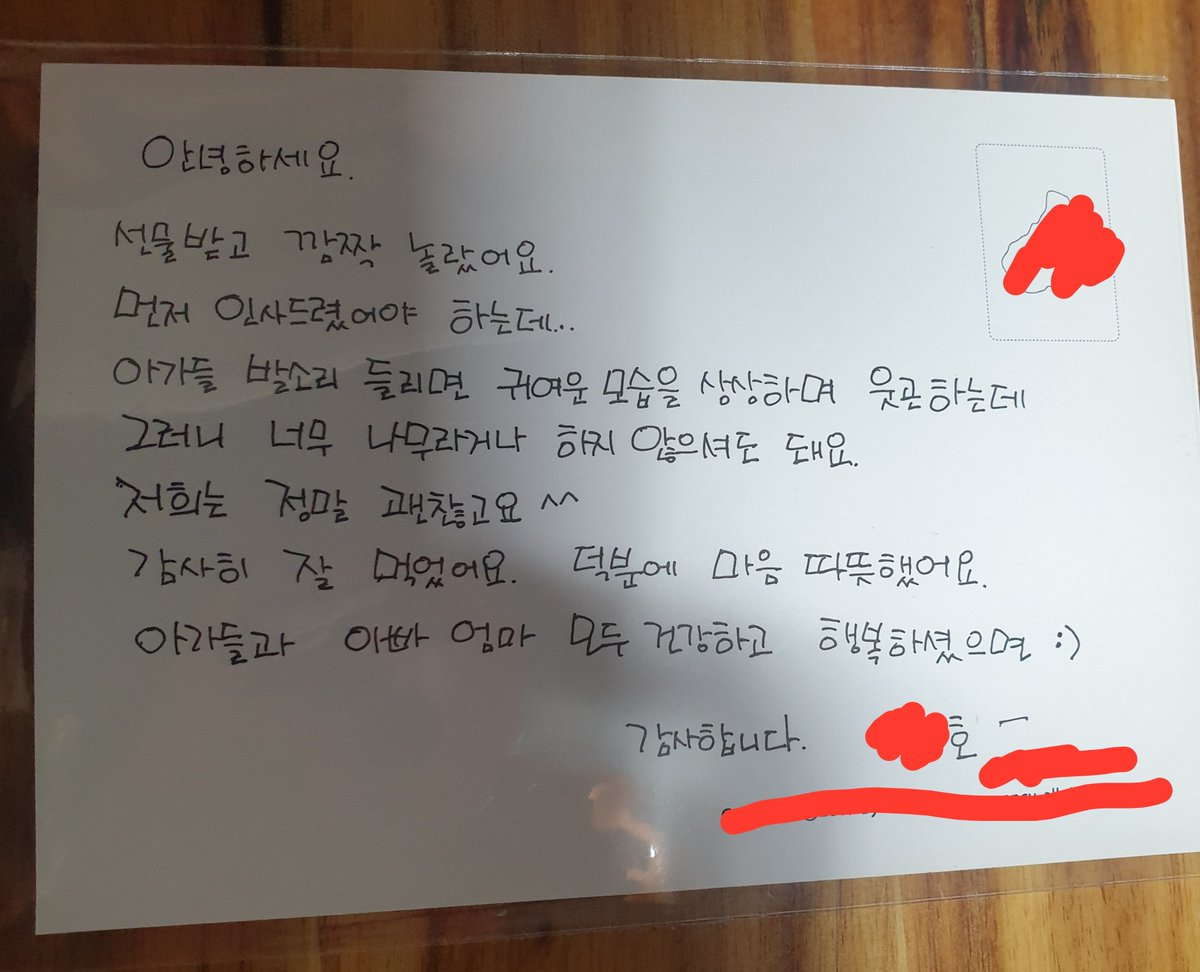 안녕하세요.
선물받고 깜짝 놀랐어요.
먼저 인사드렸어야 하는데...
아가들 발소리 들리면 귀여운 모습을 상상하며 웃곤하는데
그러니 너무 나무라거나 하지 않으셔도 돼요.
저희는 정말 괜찮고요 ^^
감사히 잘 먹었어요. 덕분에 마음 따뜻했어요.
아가들과 아빠 엄마 모두 건강하고 행복하셨으면 :)
감사합니다. 호